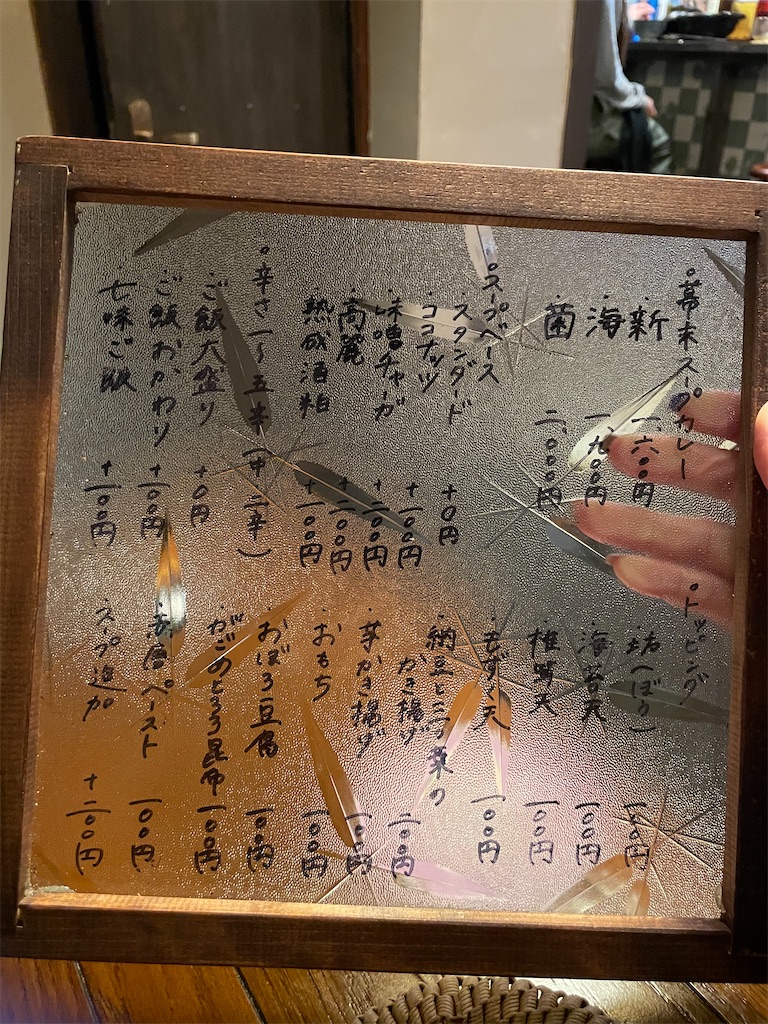 幕末スープカレー
・新 一、六〇〇円
・海 一、九〇〇円
・菌 二、〇〇〇円
スープベース
・スタンダード +〇円
・ココナッツ +一〇〇円
・味噌チャーガ +二〇〇円
・高麗 +二〇〇円
・熟成酒粕 +一〇〇円
辛さ 一〜五半(中 三辛)
・ご飯大盛り +〇円
・ご飯おかわり +一〇〇円
・七味ご飯 +一〇〇円
トッピング
・坊(へぼり) 一〇〇円
・海苔天 一〇〇円
・椎茸天 一〇〇円
・もずく天 一〇〇円
・納豆と三つ葉の
かき揚げ 二〇〇円
・芋かき揚げ 一〇〇円
・おもち 一〇〇円
・おぼろ豆腐 一〇〇円
・がごめとろろ昆布 一〇〇円
ペースト 一〇〇円
・スープ追加 +二〇〇円